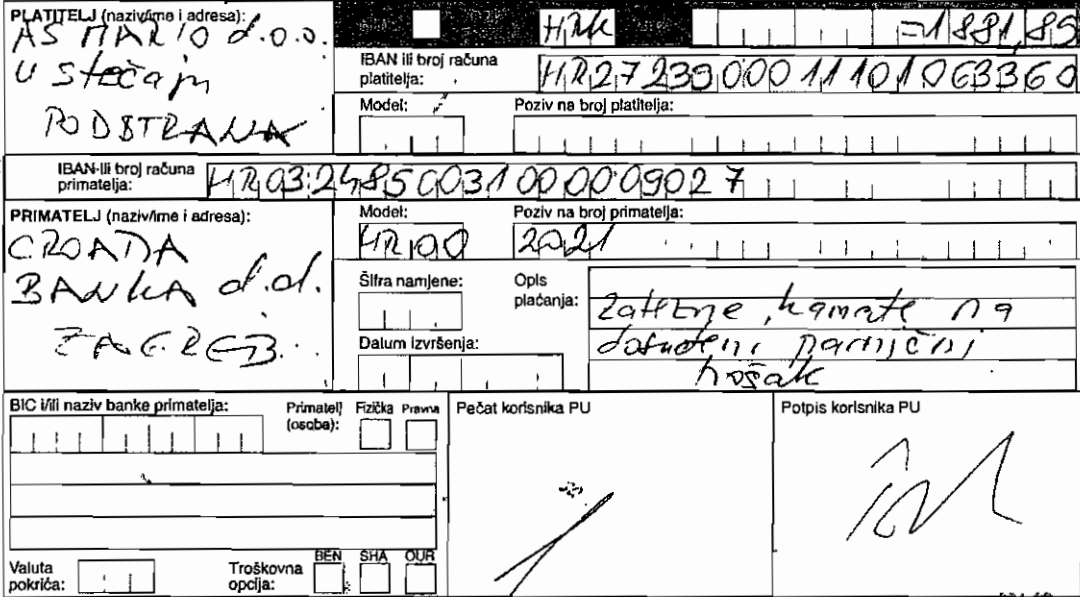 PLATITELJ (naziv/ime i adresa):
AS MARIO d.o.o.
u stečaju
PODSTRANA
HRK =1881,85
IBAN ili broj računa platitelja: HR2723900011101063360
Model: Poziv na broj platitelja:
IBAN ili broj računa primatelja: HR0324850031000009027
PRIMATELJ (naziv/ime i adresa):
CROATIA
BANKA d.d.
ZAGREB
Model: Poziv na broj primatelja:
HR00 2021
Šifra namjene: Opis plaćanja:
zatezne kamate na
dosuđeni parnični
trošak
Datum izvršenja:
BIC i/ili naziv banke primatelja: Primatelj (osoba): Fizička Pravna
Pečat korisnika PU
Potpis korisnika PU
Valuta pokrića: Troškovna opcija: BEN SHA OUR